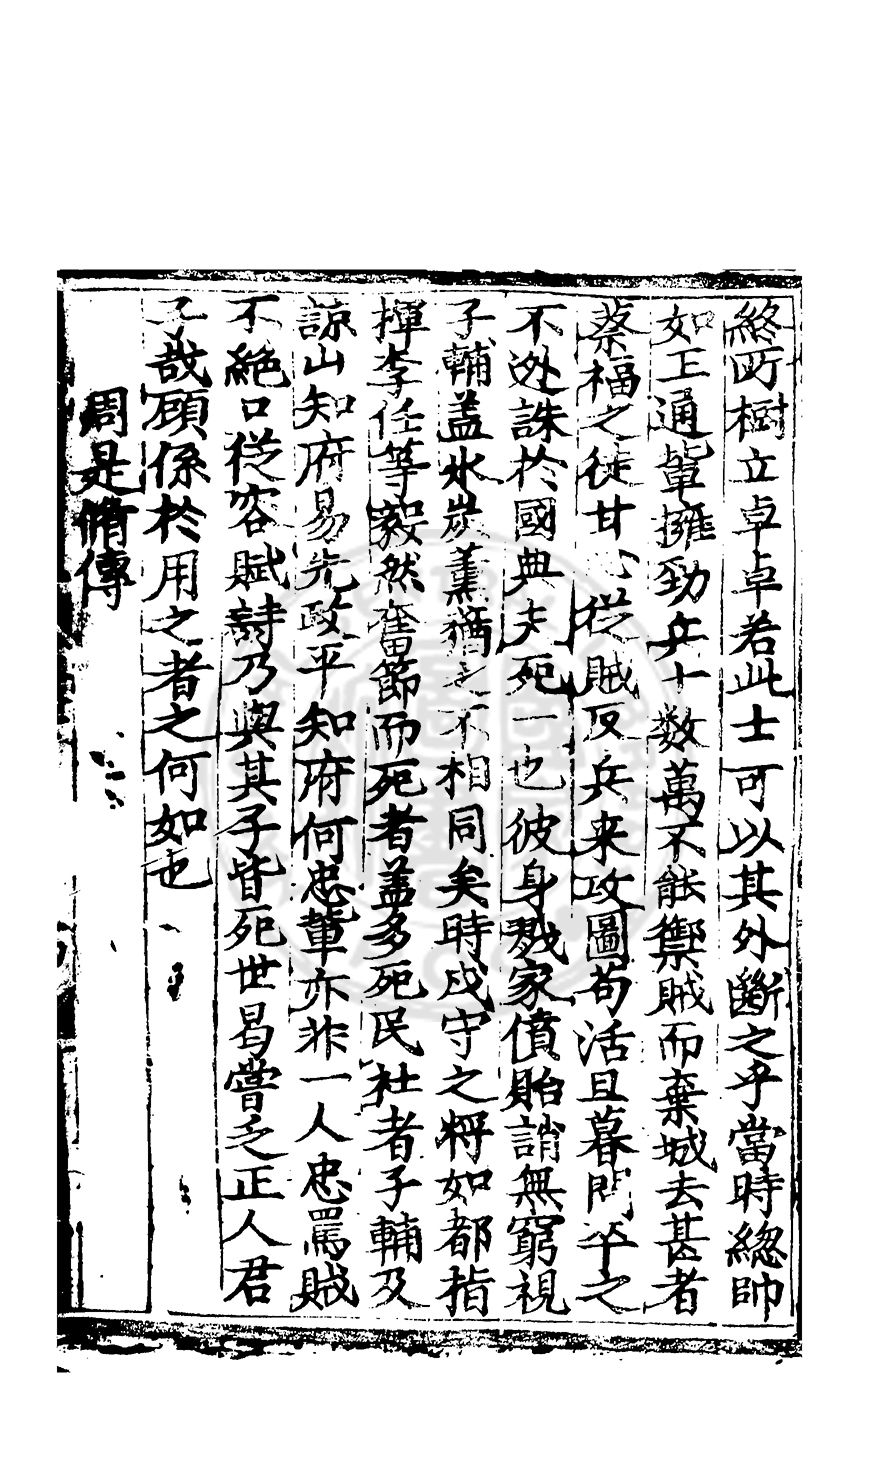 終所樹立卓卓若此士可以其外斷之乎當時總帥
如王通軰擁勁兵十数萬不能禦賊而棄城去甚者
蔡福之徒甘心從賊反兵来攻圖苟活旦暮間卒之
不迯誅於國典夫死一也彼身戮家僨貽誚無窮視
子輔盖氷炭薰蕕之不相同矣時戍守之将如都指
揮李任等毅然奮節而死者盖多死民社者子輔及
諒山知府易先政平知府何忠軰亦非一人忠罵賊
不絶口從容賦詩乃與其子皆死世曷嘗乏正人君
子哉顧係於用之者之何如也
周是脩傳